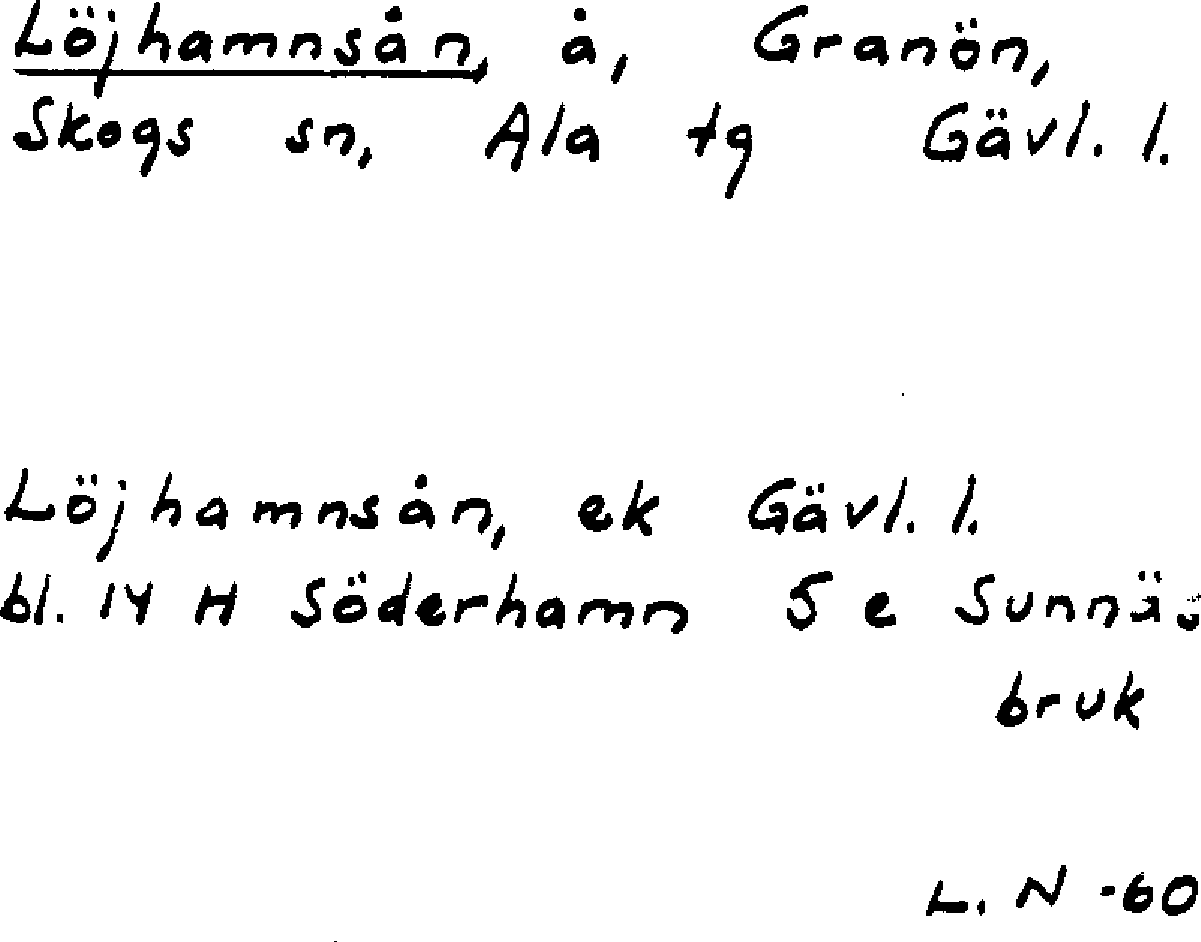 Löjhamnsån, å, Granön,
Skogs sn, Ala tg Gävl. l.
Löjhamnsån, ek Gävl. l.
bl. 14 H Söderhamn 5 e Sunnäs
bruk
L. N -60